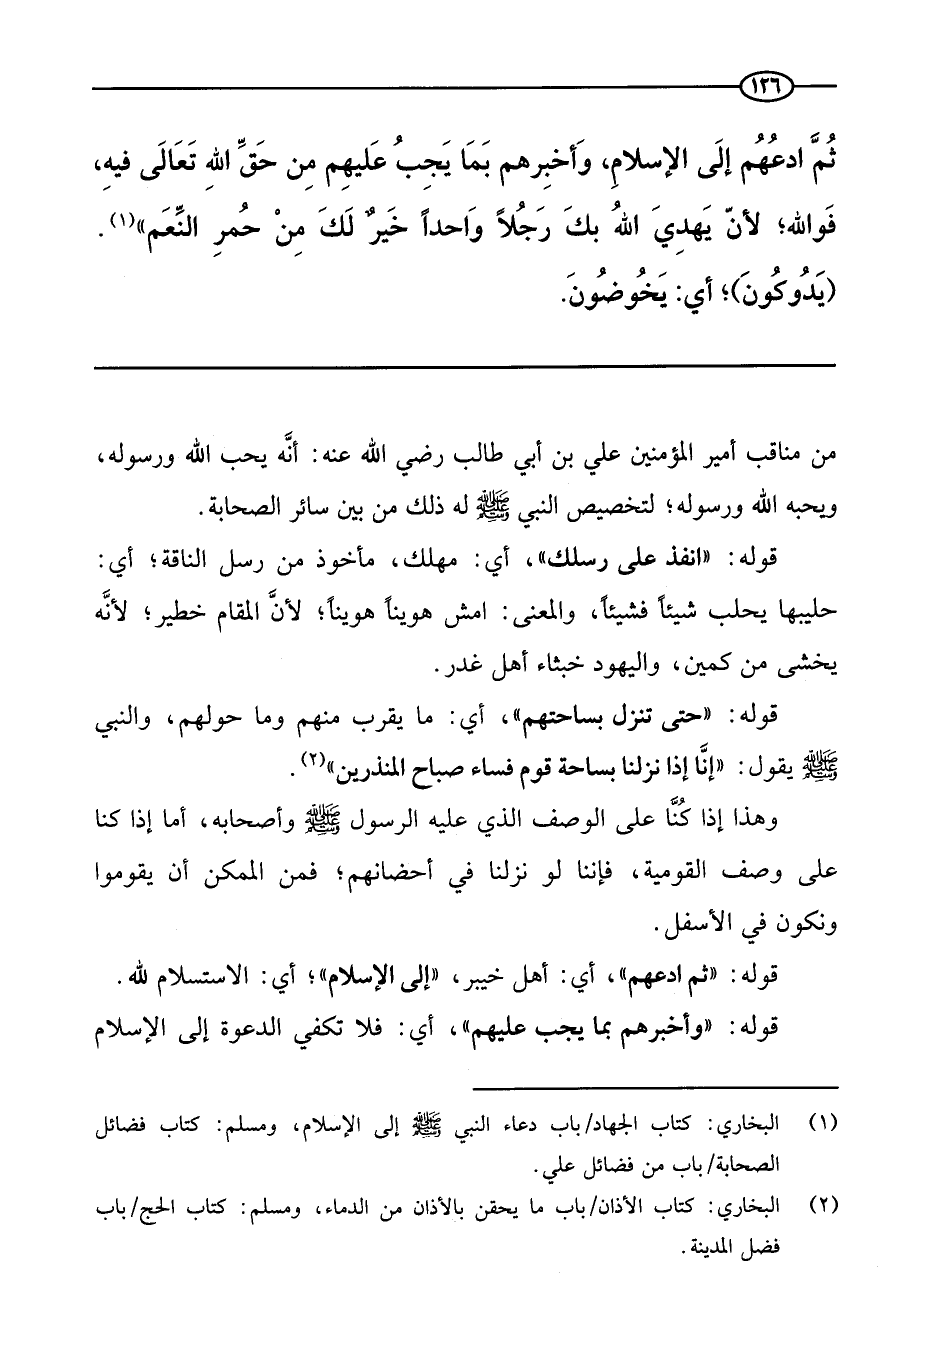 ١٣٦
ثُمَّ ادعُهُم إلَى الإسلامِ، وَأخبِرهم بَمَا يَجِبُ عَليهِم مِن حَقِّ اللهِ تَعَالَى فيهِ،
فَوالله؛ لأنّ يَهدِيَ اللهُ بكَ رَجُلاً وَاحداً خَيرٌ لَكَ مِنْ حُمرِ النِّعَم»(١).
(يَدُوكُونَ)؛ أي: يَخُوضُونَ.
من مناقب أمير المؤمنين علي بن أبي طالب رضي الله عنه: أنَّه يحب الله ورسوله،
ويحبه الله ورسوله؛ لتخصيص النبي ﷺ له ذلك من بين سائر الصحابة.
قوله: «انفذ على رسلك»، أي: مهلك، مأخوذ من رسل الناقة؛ أي:
حليبها يحلب شيئاً فشيئاً، والمعنى: امش هويناً هويناً؛ لأنَّ المقام خطير؛ لأنَّه
يخشى من كمين، واليهود خبثاء أهل غدر.
قوله: «حتى تنزل بساحتهم»، أي: ما يقرب منهم وما حولهم، والنبي
ﷺ يقول: «إنَّا إذا نزلنا بساحة قوم فساء صباح المنذرين»(٢).
وهذا إذا كُنَّا على الوصف الذي عليه الرسول ﷺ وأصحابه، أما إذا كنا
على وصف القومية، فإننا لو نزلنا في أحضانهم؛ فمن الممكن أن يقوموا
ونكون في الأسفل.
قوله: «ثم ادعهم»، أي: أهل خيبر، «إلى الإسلام»؛ أي: الاستسلام لله.
قوله: «وأخبرهم بما يجب عليهم»، أي: فلا تكفي الدعوة إلى الإسلام
(١) البخاري: كتاب الجهاد/باب دعاء النبي ﷺ إلى الإسلام، ومسلم: كتاب فضائل
الصحابة/باب من فضائل علي.
(٢) البخاري: كتاب الأذان/باب ما يحقن بالأذان من الدماء، ومسلم: كتاب الحج/باب
فضل المدينة.